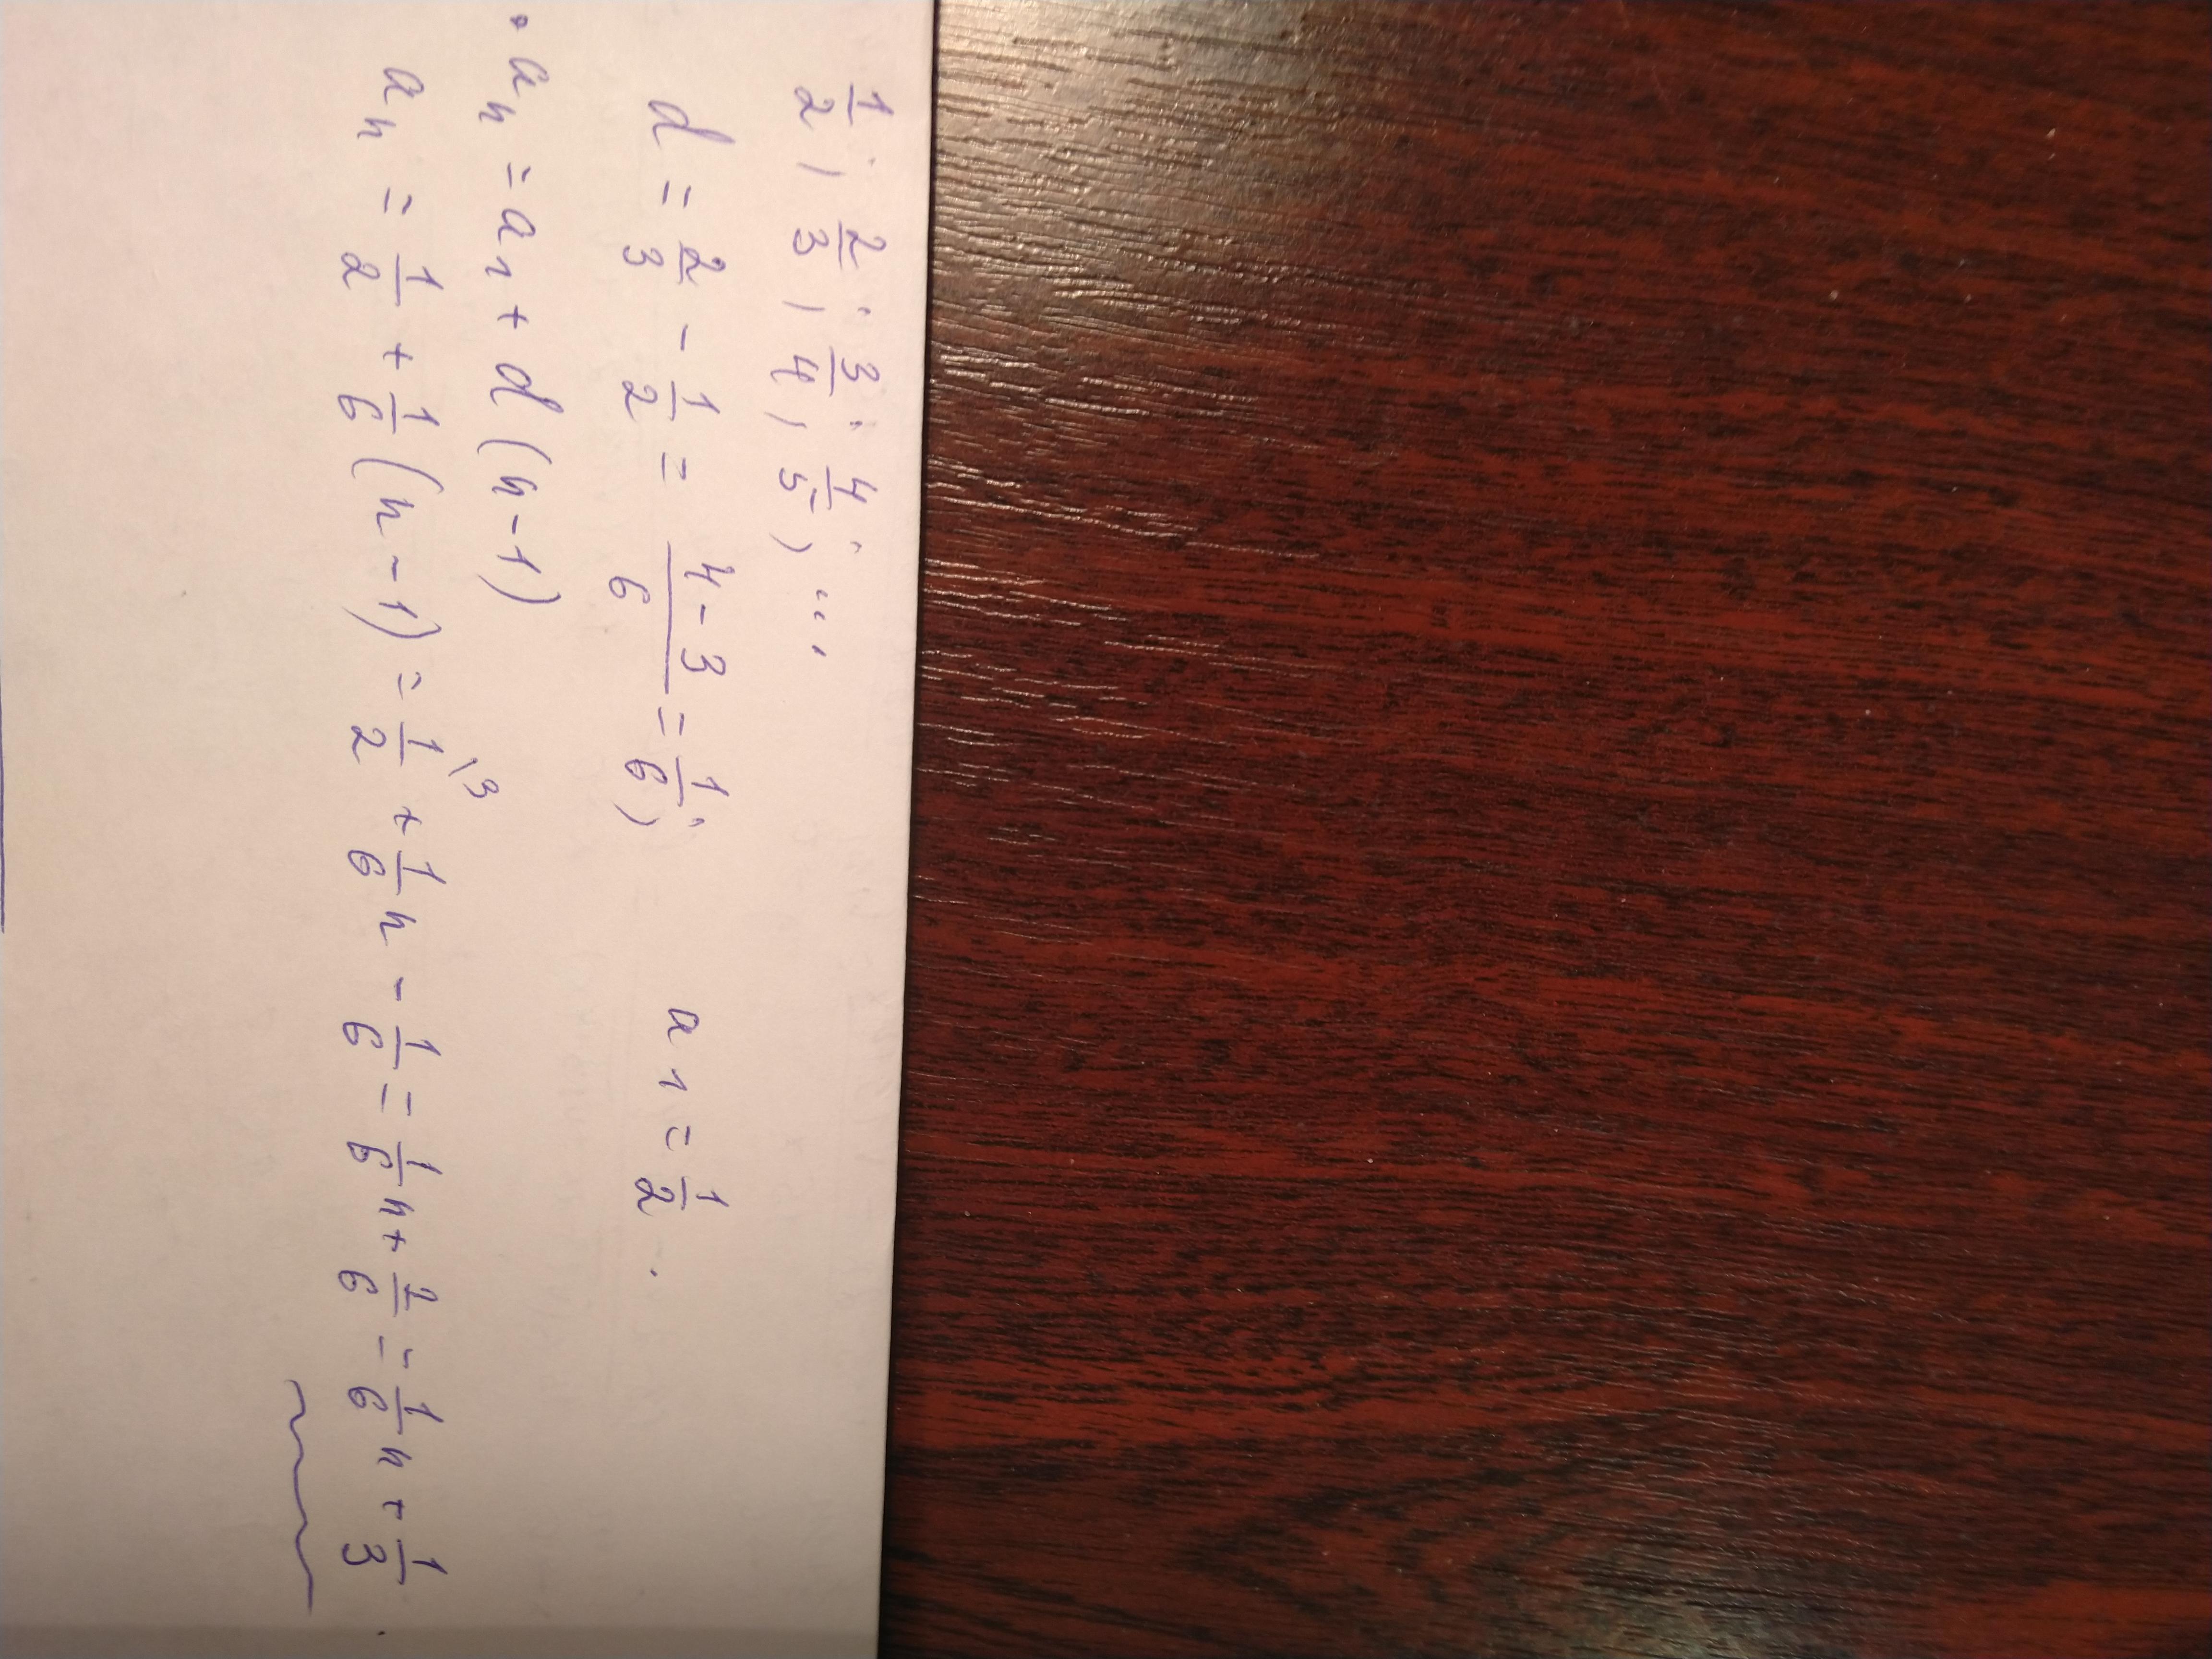 1/2; 2/3; 3/4; 4/5; ...
d = 2/3 - 1/2 = (4-3)/6 = 1/6; a₁ = 1/2.
• aₙ = a₁ + d(n-1)
aₙ = 1/2 + 1/6(n-1) = 1/2\3 + 1/6n - 1/6 = 1/6n + 2/6 = 1/6n + 1/3.